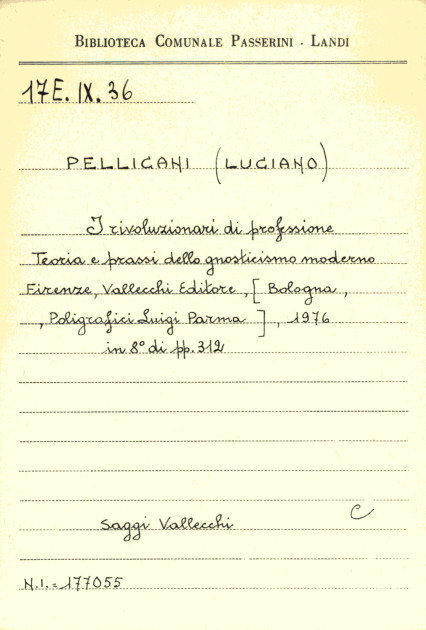 BIBLIOTECA COMUNALE PASSERINI - LANDI
17E. IX. 36
PELLICANI (LUCIANO)
I rivoluzionari di professione
Teoria e prassi dello gnosticismo moderno
Firenze, Vallecchi Editore, [ Bologna,
, Poligrafici Luigi Parma ], 1976
in 8° di pp. 312
Saggi Vallecchi
C
N.I. = 177055